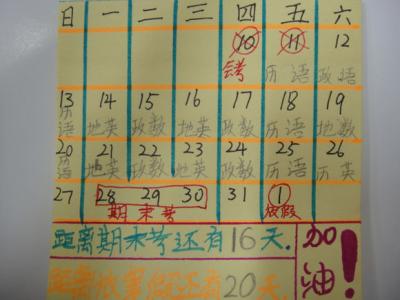 日 一 二 三 四 五 六
10 11 12
会考 历 语 政 语
13 14 15 16 17 18 19
历语 地英 政数 地英 政数 历语 地英
20 21 22 23 24 25 26
历语 地英 政数 地英 政数 历语 历英
27 28 29 30 31 1
期末考 放假
距离期末考还有16天.
暑假还有20天
加油!